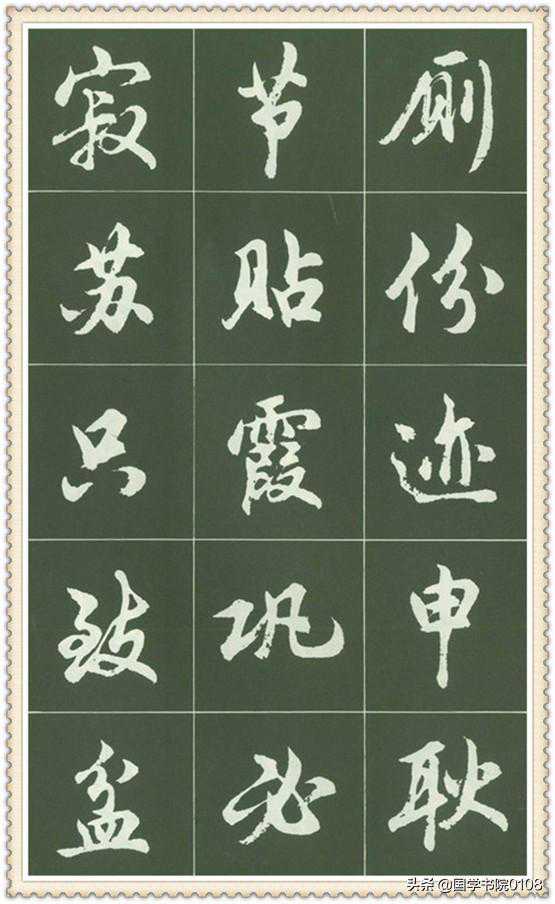 厕份迹申耿
节贴霞巩必
寂苏只致盆
头条 @国学书院0108